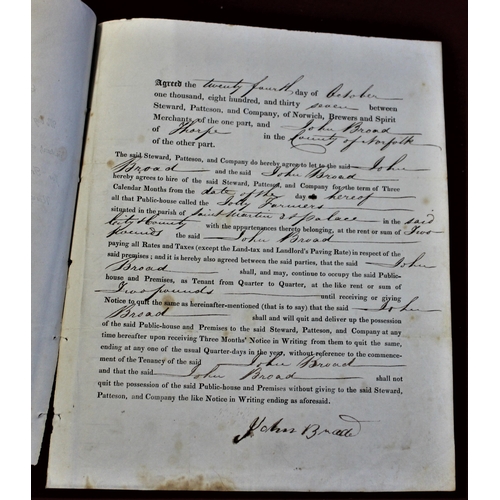 Agreed the twenty fourth day of October
one thousand, eight hundred, and thirty seven between
Steward, Patteson, and Company, of Norwich, Brewers and Spirit
Merchants, of the one part, and John Broad
of Thorpe in the County of Norfolk
of the other part.
The said Steward, Patteson, and Company do hereby agree to let to the said John
Broad and the said John Broad
hereby agrees to hire of the said Steward, Patteson, and Company for the term of Three
Calendar Months from the date of the day hereof
all that Public-house called the Jolly Farmers
situated in the parish of Saint Martin at palace in the said
County with the appurtenances thereto belonging, at the rent or sum of Two
pounds the said John Broad
paying all Rates and Taxes (except the Land-tax and Landlord's Paving Rate) in respect of the
said premises; and it is hereby also agreed between the said parties, that the said John
Broad shall, and may, continue to occupy the said Public-
house and Premises, as Tenant from Quarter to Quarter, at the like rent or sum of
Two pounds until receiving or giving
Notice to quit the same as hereinafter-mentioned (that is to say) that the said John
Broad shall and will quit and deliver up the possession
of the said Public-house and Premises to the said Steward, Patteson, and Company at any
time hereafter upon receiving Three Months' Notice in Writing from them to quit the same,
ending at any one of the usual Quarter-days in the year, without reference to the commence-
ment of the Tenancy of the said John Broad
and that the said John Broad shall not
quit the possession of the said Public-house and Premises without giving to the said Steward,
Patteson, and Company the like Notice in Writing ending as aforesaid.
John Broad